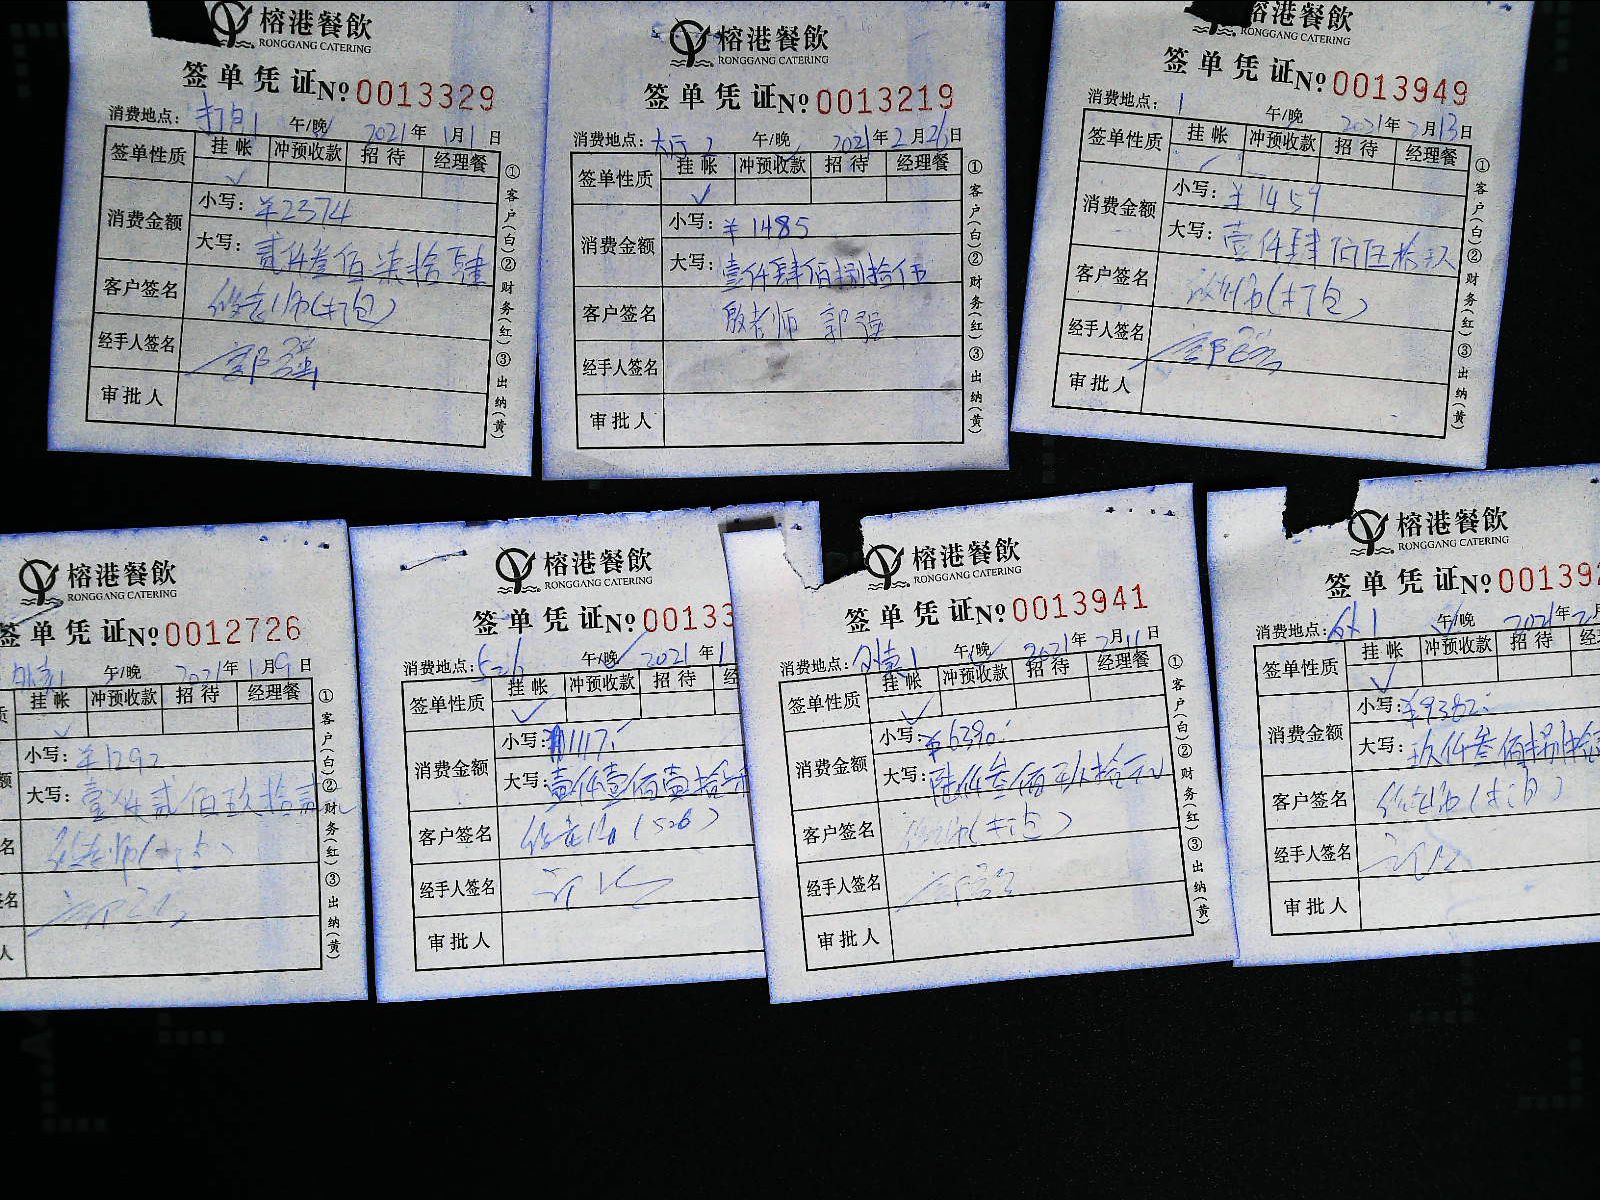 榕港餐飲
RONGGANG CATERING
签单凭证№0013329
消费地点： 午/晚 2021年1月1日
签单性质 挂帐 冲预收款 招待 经理餐
消费金额 小写：¥2374
大写：贰仟叁佰柒拾肆
客户签名
经手人签名 郭强
审批人
①客户(白)②财务(红)③出纳(黄)
榕港餐飲
RONGGANG CATERING
签单凭证№0013219
消费地点：大厅2 午/晚 2021年2月26日
签单性质 挂帐 冲预收款 招待 经理餐
消费金额 小写：¥1485
大写：壹仟肆佰捌拾伍
客户签名 殷老师 郭强
经手人签名
审批人
①客户(白)②财务(红)③出纳(黄)
榕港餐飲
RONGGANG CATERING
签单凭证№0013949
消费地点：1 午/晚 2021年2月13日
签单性质 挂帐 冲预收款 招待 经理餐
消费金额 小写：¥1459
大写：壹仟肆佰伍拾玖
客户签名 (打包)
经手人签名
审批人
①客户(白)②财务(红)③出纳(黄)
榕港餐飲
RONGGANG CATERING
签单凭证№0012726
午/晚 2021年1月9日
挂帐 冲预收款 招待 经理餐
小写：¥1292
大写：壹仟贰佰玖拾贰元
名
签名
人
①客户(白)②财务(红)③出纳(黄)
榕港餐飲
RONGGANG CATERING
签单凭证№00133
消费地点：526 午/晚 2021年1
签单性质 挂帐 冲预收款 招待 经
消费金额 小写：1117.
大写：壹仟壹佰壹拾
客户签名 (526)
经手人签名
审批人
榕港餐飲
RONGGANG CATERING
签单凭证№0013941
消费地点： 午/晚 2021年2月11日
签单性质 挂帐 冲预收款 招待 经理餐
消费金额 小写：¥6390.
大写：陆仟叁佰玖拾元
客户签名 (打包)
经手人签名
审批人
①客户(白)②财务(红)③出纳(黄)
榕港餐飲
RONGGANG CATERING
签单凭证№00139
消费地点： 午/晚 2021年2月
签单性质 挂帐 冲预收款 招待 经
消费金额 小写：¥9382.
大写：玖仟叁佰捌拾
客户签名
经手人签名
审批人